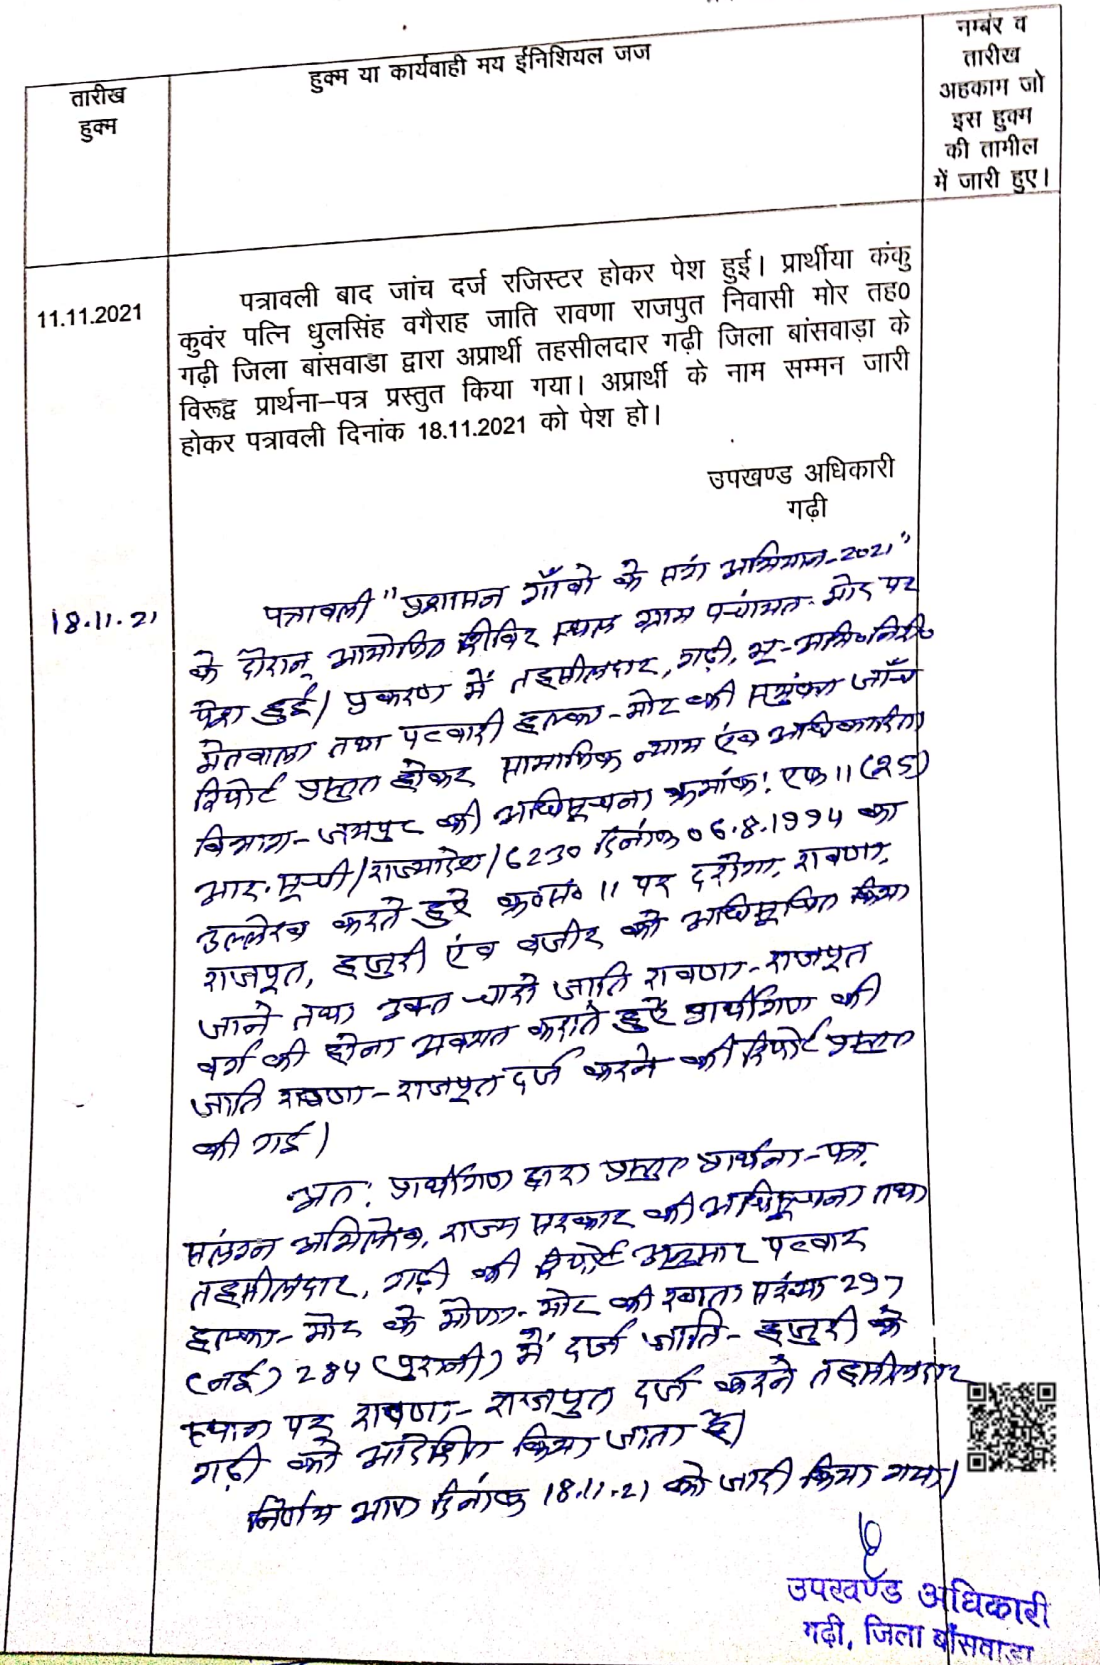 तारीख
हुक्म
हुक्म या कार्यवाही मय ईनिशियल जज
नम्बंर व
तारीख
अहकाम जो
इस हुक्म
की तामील
में जारी हुए।
11.11.2021
पत्रावली बाद जांच दर्ज रजिस्टर होकर पेश हुई। प्रार्थीया कंकु
कुवंर पत्नि धुलसिंह वगैराह जाति रावणा राजपुत निवासी मोर तह0
गढ़ी जिला बांसवाडा द्वारा अप्रार्थी तहसीलदार गढ़ी जिला बांसवाडा के
विरूद्व प्रार्थना–पत्र प्रस्तुत किया गया। अप्रार्थी के नाम सम्मन जारी
होकर पत्रावली दिनांक 18.11.2021 को पेश हो।
उपखण्ड अधिकारी
गढ़ी
18.11.21
पत्रावली "प्रशासन गाँवो के संग अभियान-2021"
के दौरान आयोजित शीविर स्थल ग्राम पंचायत-मोर पर
पेश हुई। प्रकरण में तहसीलदार, गढ़ी, भू-अभि०निरी०
मेतवाला तथा पटवारी हल्का-मोर की सयुंक्त जाँच
रिपोर्ट प्रस्तुत होकर सामाजिक न्याय एंव अधिकारिता
विभाग-जयपुर की अधिसूचना क्रमांक: एफ 11 (25)
आर.
/6230 दिनांक 06.8.1994 का
उल्लेख करते हुऐ क्र०सं० 11 पर दरोगा, रावणा
राजपूत, हजुरी एंव वजीर को अधिसूचित किया
जाने तथा उक्त चारो जाति रावणा-राजपूत
वर्ग की होना अवगत कराते हुऐ प्रार्थीगण की
जाति रावणा-राजपूत दर्ज करने की रिपोर्ट प्रस्तुत
की गई।
अत: प्रार्थीगण द्वारा प्रस्तुत प्रार्थना-पत्र,
संलग्न अभिलेख, राज्य सरकार की अधिसूचना तथा
तहसीलदार, गढ़ी की रिपोर्ट अनुसार पटवार
हल्का-मोर के मौजा-मोर की खाता संख्या 297
(नई) 284 (पुरानी) में दर्ज जाति-हजुरी के
स्थान पर रावणा-राजपुत दर्ज करने तहसीलदार
गढ़ी को आदेशित किया जाता है।
निर्णय आज दिनांक 18.11.21 को जारी किया गया।
उपखण्ड अधिकारी
गढ़ी, जिला बाँसवाड़ा